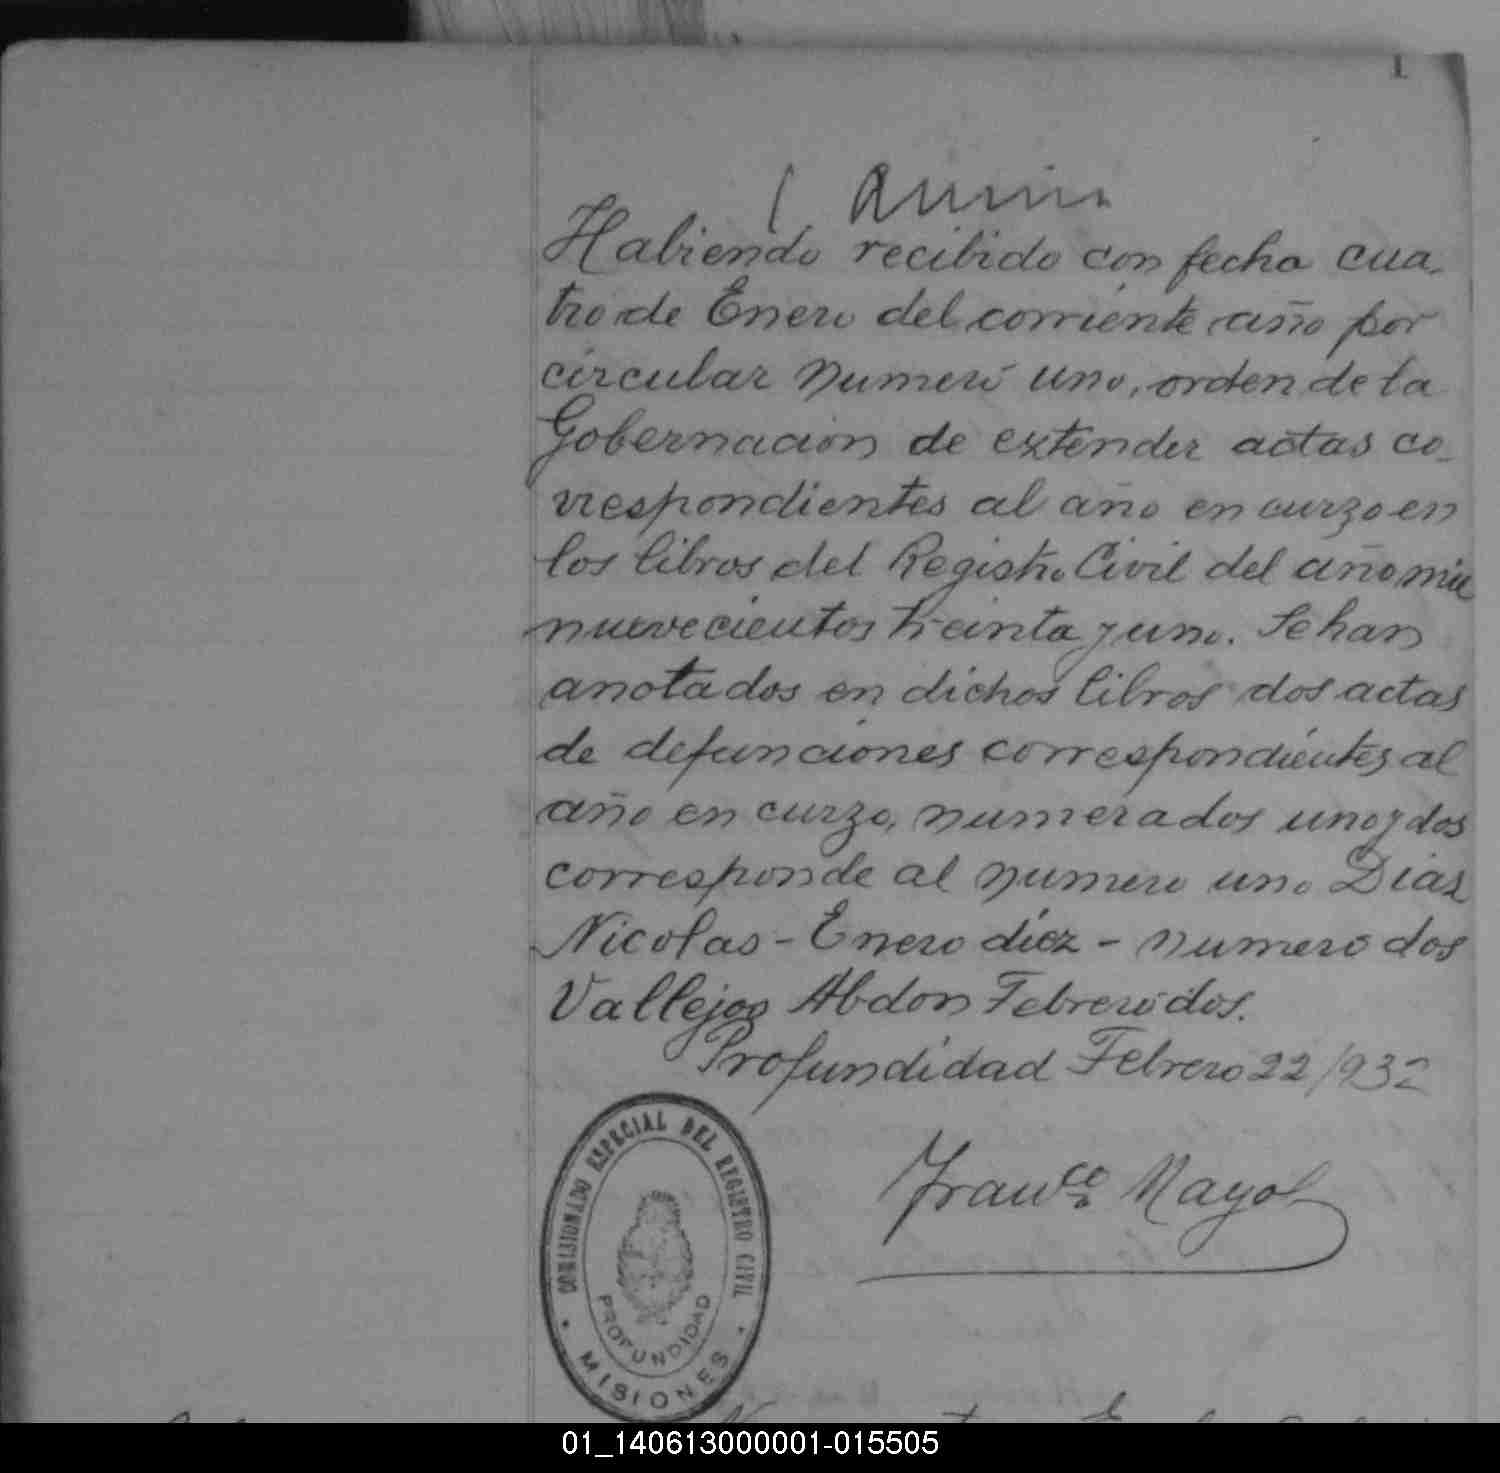 1
Habiendo recibido con fecha cua-
tro de Enero del corriente año por
circular numero uno, orden de la
Gobernacion de extender actas co-
rrespondientes al año en curzo en
los libros del Registro Civil del año mil
nuevecientos treinta y uno. Se han
anotados en dichos libros dos actas
de defunciones correspondientes al
año en curzo, numerados uno y dos
corresponde al numero uno Dias
Nicolas - Enero diez - numero dos
Vallejos Abdon Febrero dos.
Profundidad Febrero 22/932
Franco Mayol
COMISIONADO ESPECIAL DEL REGISTRO CIVIL
PROFUNDIDAD
MISIONES
01_140613000001-015505